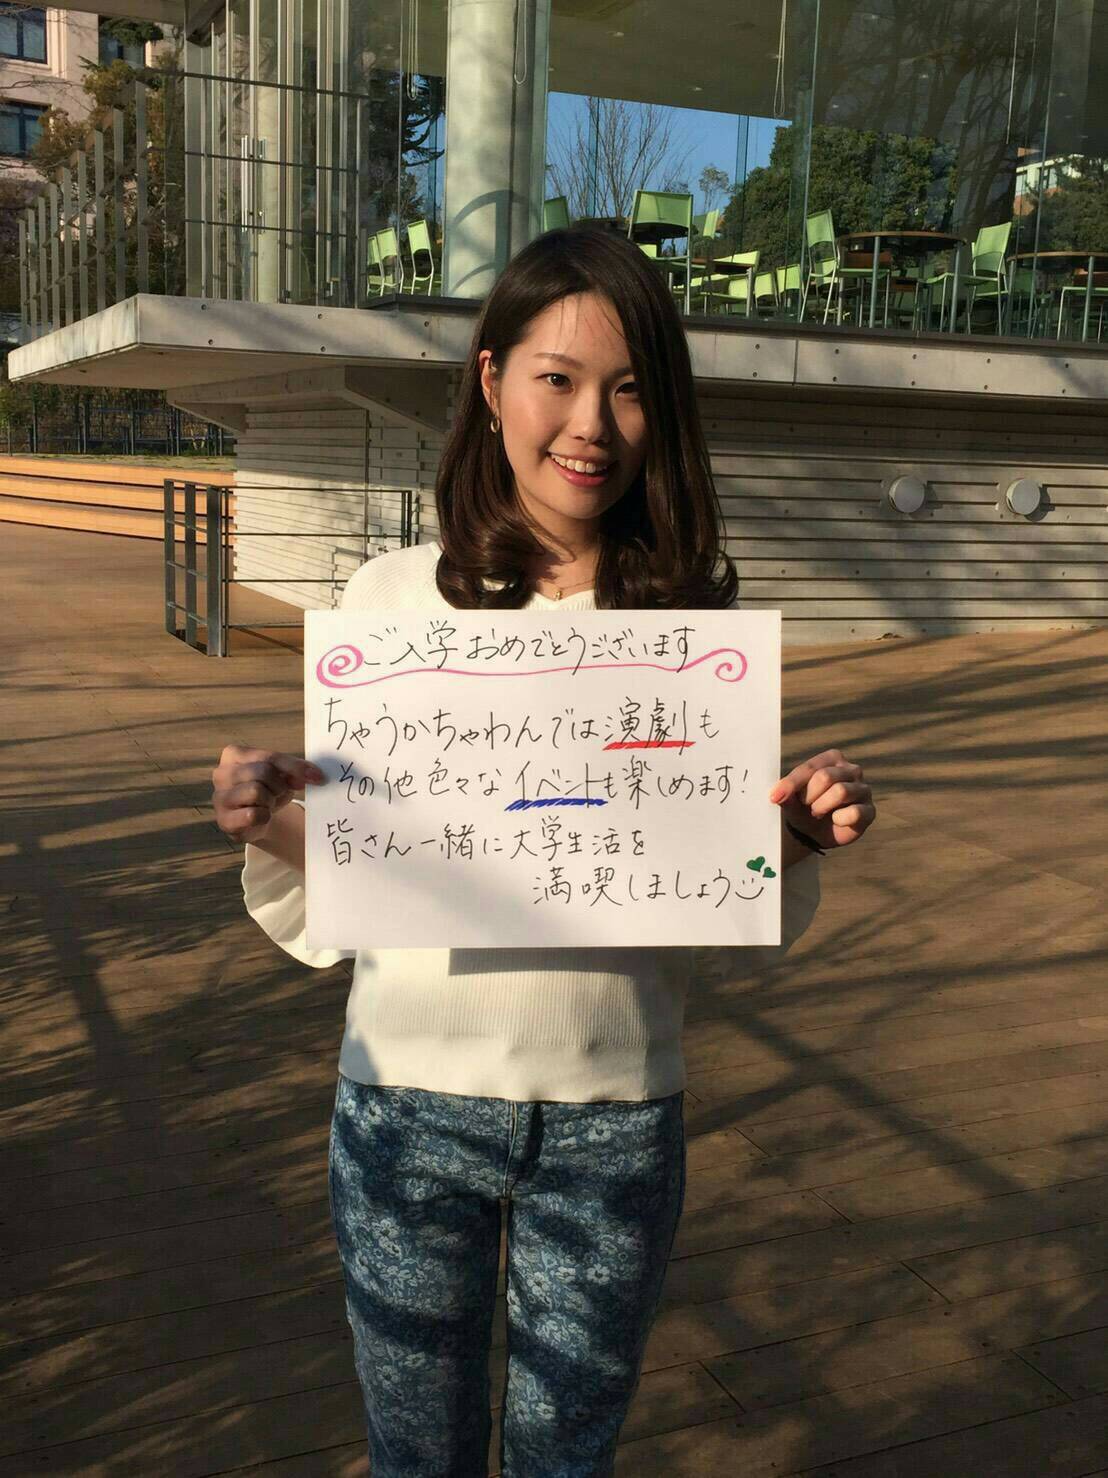 ご入学おめでとうございます
ちゃうかちゃわんでは演劇も
その他色々なイベントも楽しめます!
皆さん一緒に大学生活を
満喫しましょう